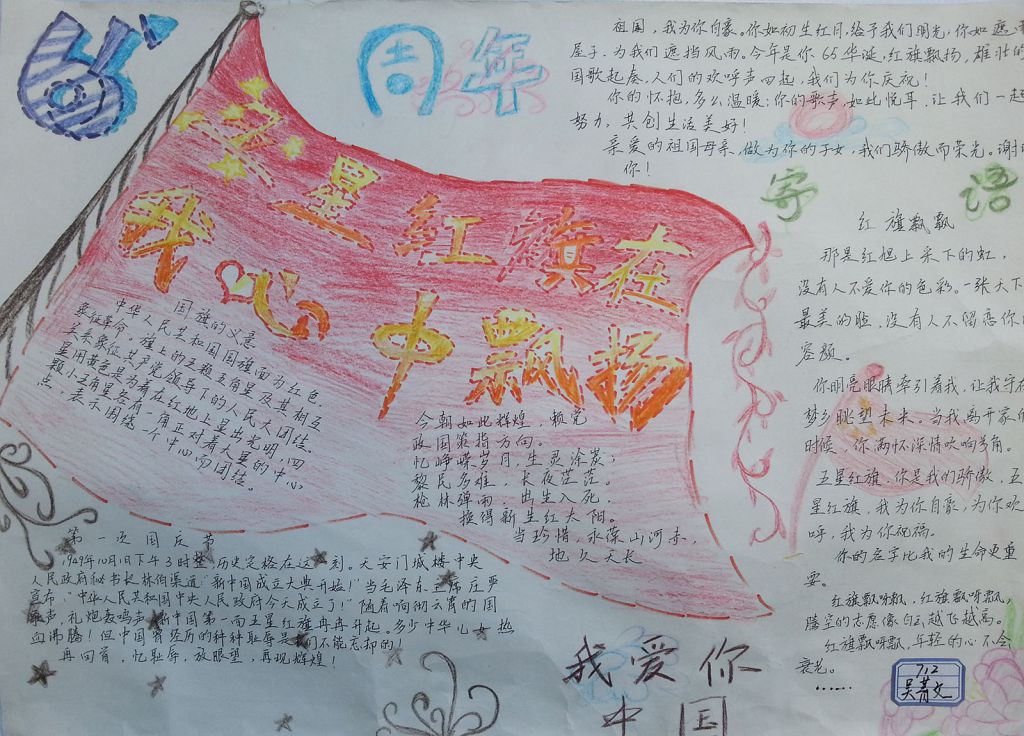 65
周年
祖国,我为你自豪。你如初生红日,给予我们明光,你如遮
屋子,为我们遮挡风雨。今年是你65华诞,红旗飘扬,雄壮的
国歌起奏,人们的欢呼声四起,我们为你庆祝!
你的怀抱,多么温暖;你的歌声,如此悦耳,让我们一起
努力,共创生活美好!
亲爱的祖国母亲,做为你的子女,我们骄傲而荣光。谢
你!
寄语
星红旗在
我心中飘扬
国旗的义意
中华人民共和国国旗旗面为红色,
象征革命,旗上的五颗五角星及其相互
关系象征共产党领导下的人民大团结。
星用黄色是为着在红地上显出光明,四
颗小五角星各有一角正对着大星的中心
点,表示围绕一个中心而团结。
今朝如此辉煌,赖党
政国策指方向。
忆峥嵘岁月,生灵涂炭;
黎民多难,长夜茫茫。
枪林弹雨,出生入死,
换得新生红太阳。
当珍惜,永葆山河赤,
地久天长
第一次国庆节
1949年10月1日下午3时整,历史定格在这一刻。天安门城楼中央
人民政府秘书长林伯渠道"新中国成立大典开始!"当毛泽东主席庄严
宣布:"中华人民共和国中央人民政府今天成立了!"随着响彻云霄的国
歌声,礼炮轰鸣声,新中国第一面五星红旗冉冉升起。多少中华儿女热
血沸腾!但中国曾经历的种种耻辱是我们不能忘却的
再回首,忆耻辱,放眼望,再现辉煌!
红旗飘飘
那是红旭上采下的虹,
没有人不爱你的色彩。一张天下
最美的脸,没有人不留恋你
容颜。
你明亮眼睛牵引着我,让我守在
梦乡眺望未来。当我离开家的
时候,你满怀深情吹响号角。
五星红旗,你是我们骄傲,五
星红旗,我为你自豪,为你欢
呼,我为你祝福。
你的名字比我的生命更重
要。
红旗飘呀飘,红旗飘呀飘,
腾空的志愿像白云越飞越高。
红旗飘呀飘,年轻的心不会
衰老。
……
我爱你
中国
712
吴菁文